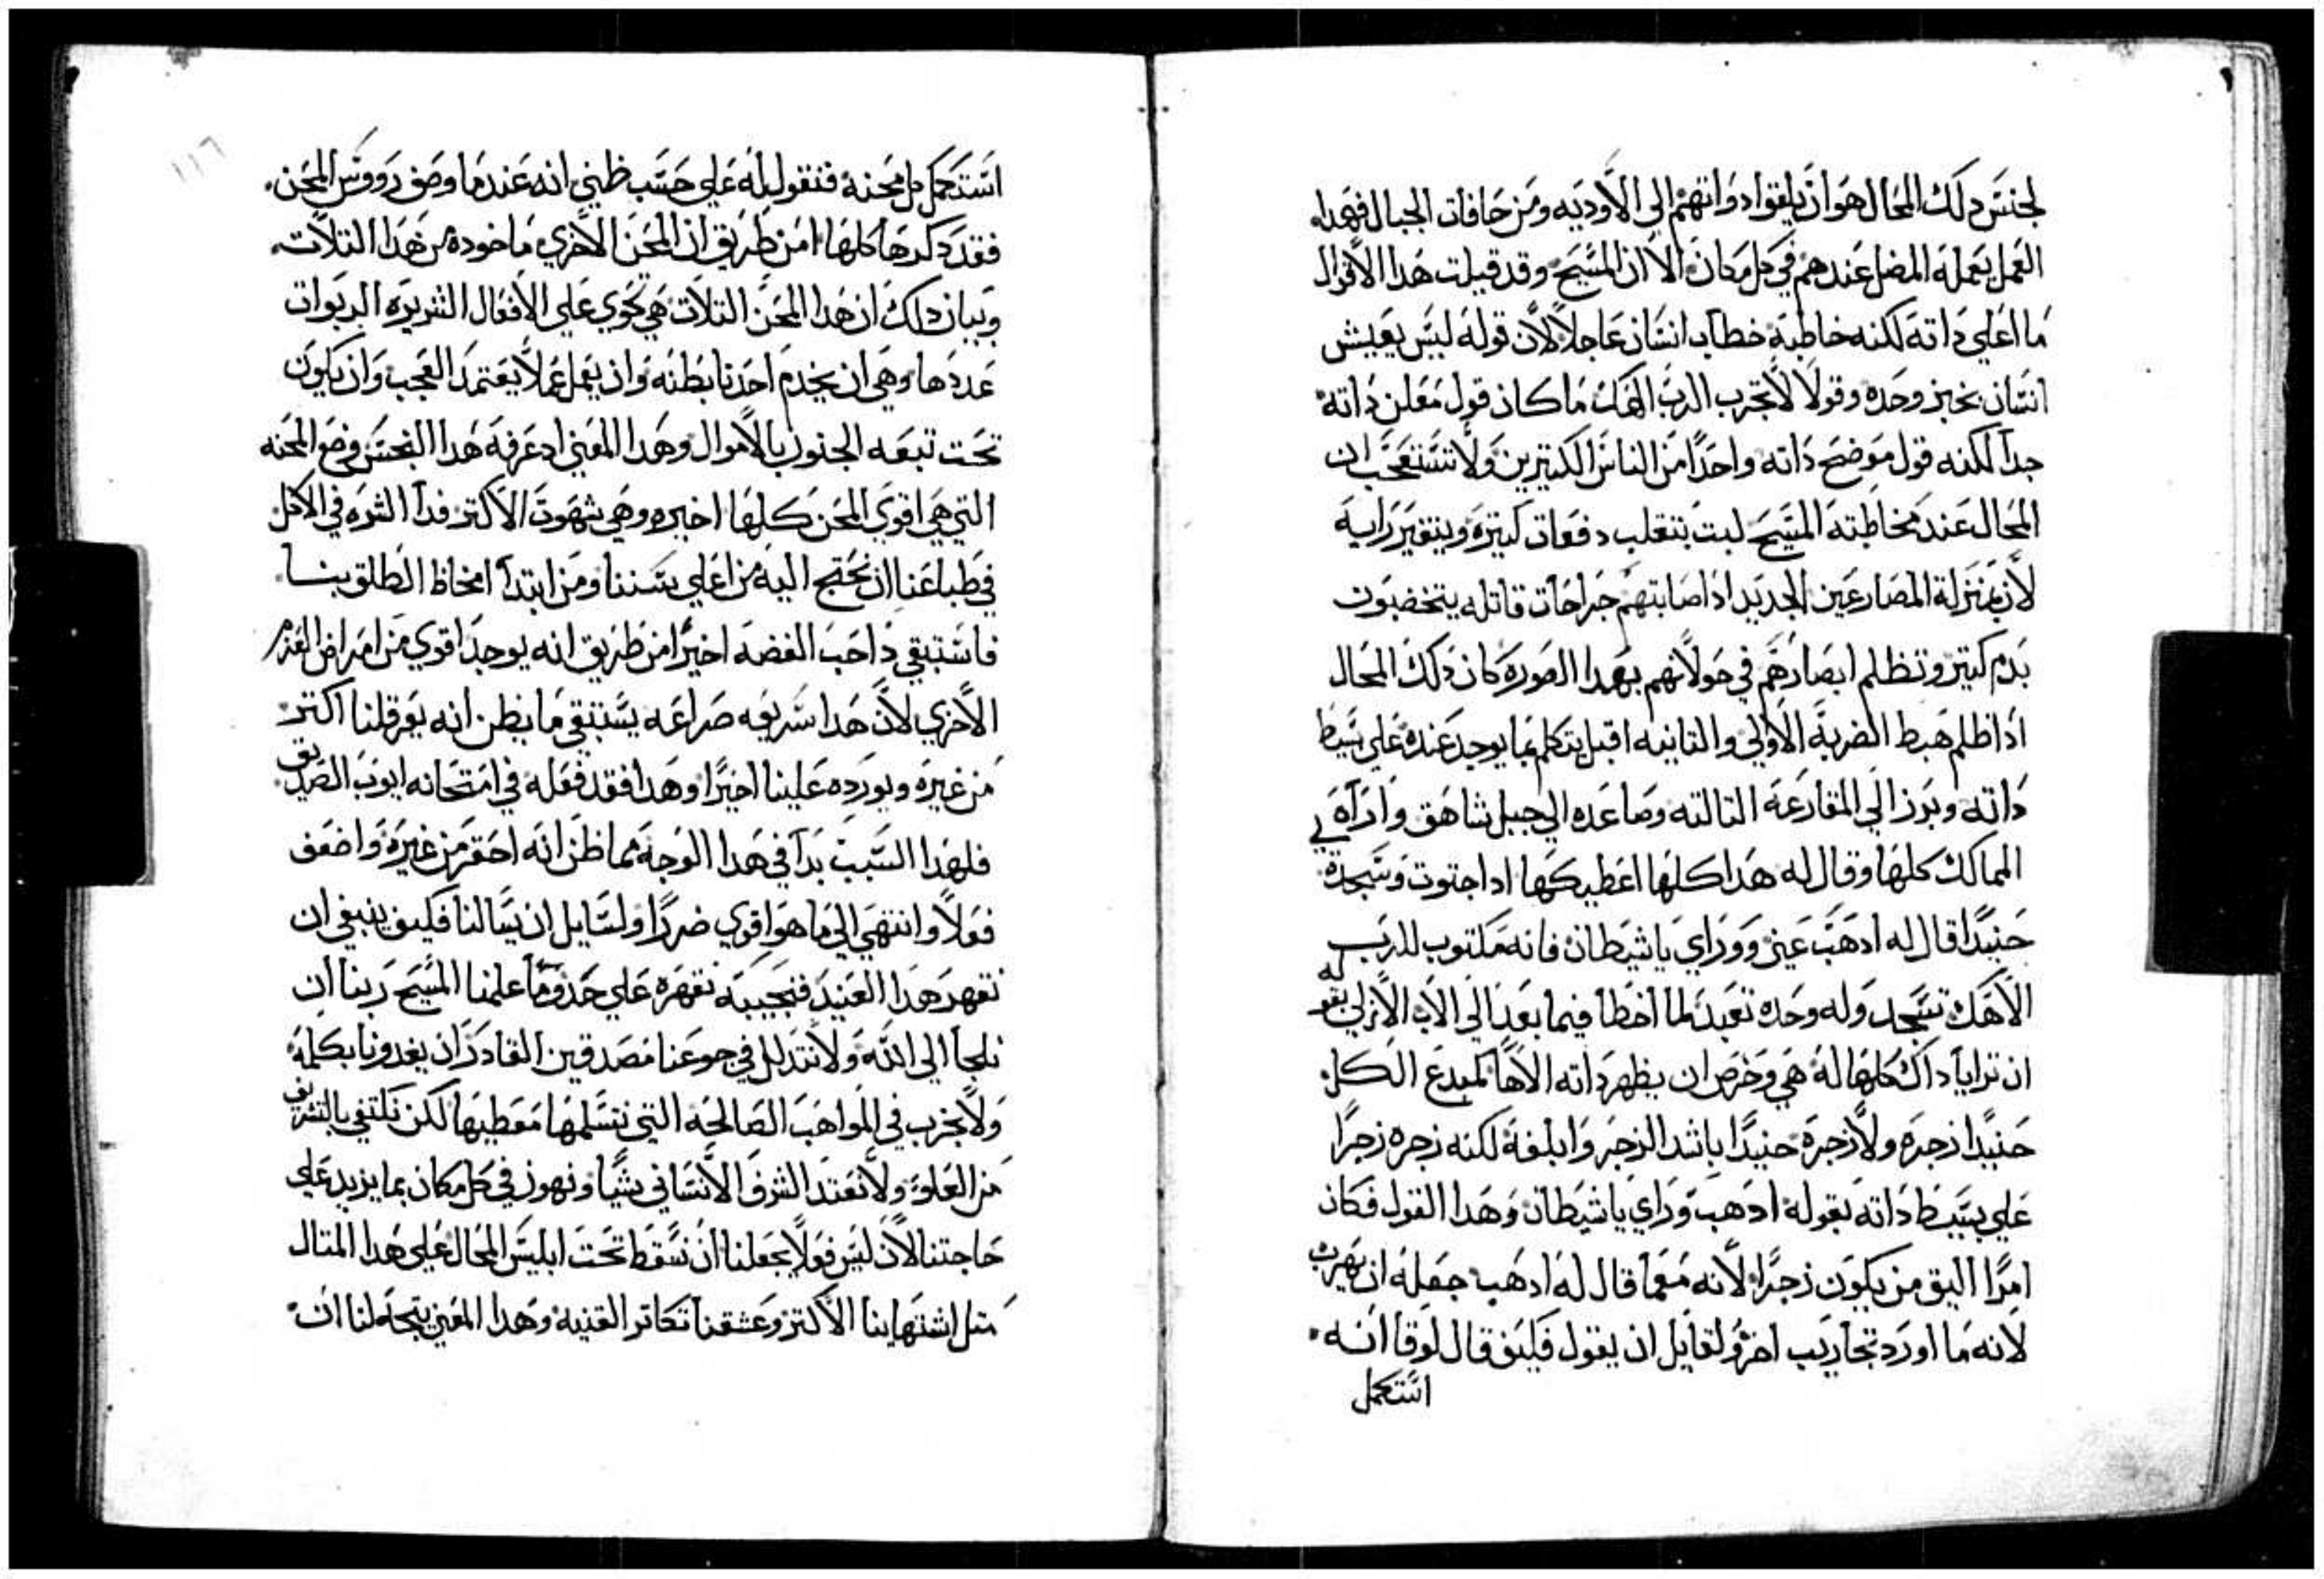 لجنس دلك المحال هو ان يلقوا دواتهم الي الاوديه ومن حافات الجبال فهدا
العمل يعمله المضل عندهم في كل مكان الا ان المسيح وقد قيلت هدا الاقوال
ما اعلي داته لكنه خاطبه خطاب انسان عاجلا لان قوله ليس يعيش
انسان بخبز وحده وقولا لا تجرب الرب الهك ما كان قول معلن داته
جدا لكنه قول موضح داته واحدا من الناس الكتيرين ولا تستعجب ان
المحال عند مخاطبته المسيح لبت يتقلب دفعات كتيره ويتغير رايه
لان بمنزلة المصارعين الجديد ادا صابتهم جراحات قاتله يتخضبون
بدم كتير وتظلم ابصارهم في جولانهم بهدا الصوره كان دلك المحال
اد اظلم هبط الضربه الاولي والتانيه اقبل يتكلم بما يوجد عنده علي بسيط
داته وبرز الي المقارعه التالته وصاعده الي جبل شاهق واداه في
الممالك كلها وقال له هدا كلها اعطيكها ادا جتوت وسجدة
حنيدا قال له ادهب عني وورأي يا شيطان فانه مكتوب للرب
الاهك تسجد وله وحده تعبد لما اخطا فيما بعد الي الاب الازلي بقوله
ان ترايا داك كلها له هي وخرص ان يظهر داته الاها لمبدع الكل
حنيدا زجره ولا زجره حنيدا باشد الزجر وابلغه لكنه زجره زجرا
علي بسيط داته بقوله ادهب ورأي يا شيطان وهدا القول فكان
امرا اليق من يكون زجرا لانه معما قال له ادهب جعله ان يهرب
لانه ما اورد تجاريب اخر ولقايل ان يقول فكيف قال لوقا انه
استكمل
١١٦
استكمل كل محنة فنقول له علي حسب ظني انه عندما وصف رووس المحن
فقد دكرها كلها من طريق ان المحن الاخري ماخوده من هدا التلات
وبيان دلك ان هدا المحن التلات هي تحوي علي الافعال الشريره الربوات
عددها وهي ان يخدم احدنا بطنه وان يعمل عملا يعتمد العجب وان يكون
تحت تبعه الجنون بالاموال وهدا المعني اد عرفه هدا النجس وضع المحنه
التي هي اقوي المحن كلها اخيره وهي شهوت الاكتر فدا الشره في الاكل
في طباعنا ان نحتج اليه من اعلي بسننا ومن ابتدا امخاظ الطلق بنا
فاستبقي دا حب الفضه اخيرا من طريق انه يوجد اقوي من امراض العزم
الاخري لان هدا شريعه صراعه يستبقي ما يظن انه يعرقلنا اكتر
من غيره ويورده علينا اخيرا وهدا فقد فعله في امتحانه ايوب الصديق
فلهدا السبب بدا في هدا الوجه مما ظن انه احقر من غيره واضعف
فعلا وانتهي الي ما هو اقوي ضررا ولسايل ان يسالنا فكيف ينبغي ان
نقهر هدا العنيد فنجيبه نقهره علي حدوما علمنا المسيح ربنا ان
نلجا الي الله ولا نتدلل في جوعنا مصدقين القادر ان يغدونا بكلمة
ولا نجرب في المواهب الصالحه التي نتسلمها معطيها لكن نكتفي بالشرف
من العلو ولا نعتد الشرف الانساني شيا ونهون في كل مكان بما يزيد علي
حاجتنا لان ليس فعلا يجعلنا ان نسقط تحت ابليس المحال علي هدا المتال
متل اشتهاينا الاكتر وعشقنا تكاتر القنيه وهدا المعني يتجه لنا ان